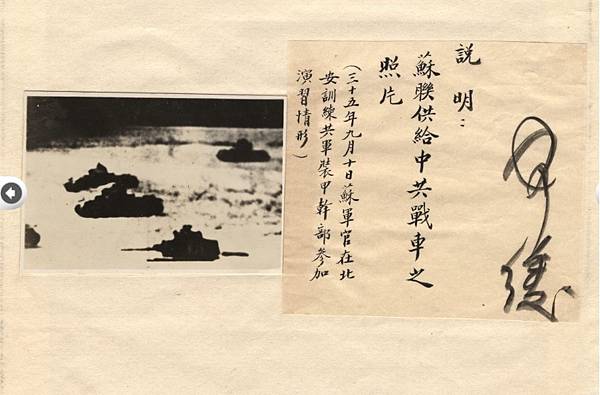 說明：
蘇聯供給中共戰車之
照片
（三十五年九月十日蘇軍官在北
安訓練共軍裝甲幹部參加
演習情形）